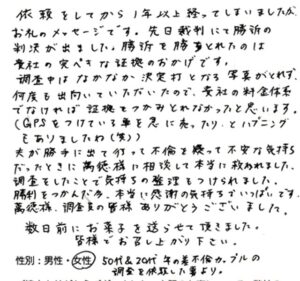 依頼をしてから1年以上経ってしまいましたが、
お礼のメッセージです。先日裁判にて勝訴の
判決が出ました。勝訴を勝ちとれたのは
貴社の完ぺきな証拠のおかげです。
調査中はなかなか決定打となる写真がとれず、
何度も出向いていただいたので、貴社の料金体系
でなければ証拠をつかみとれなかったと思います。
(GPSをつけている車を急に売ったり、とハプニング
もありましたね(笑))
夫が勝手に出て行って不倫を疑って不安な気持ち
だったときに萬徳様に相談して本当に救われました。
調査をしたことで気持ちの整理をつけられました。
勝利をつかんだ今、本当に感謝の気持ちでいっぱいです。
萬徳様、調査員の皆様ありがとうございました。
数日前にお菓子を送らせて頂きました。
皆様でお召し上がり下さい。
性別:男性・女性 50代&20代年の差不倫カップルの
調査を依頼した妻より。